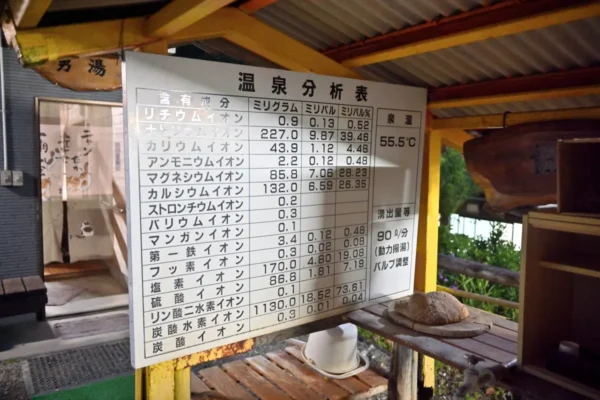 男湯
温泉分析表
含有成分 ミリグラム ミリバル ミリバル%
リチウムイオン 0.9 0.13 0.52
ナトリウムイオン 227.0 9.87 39.46
カリウムイオン 43.9 1.12 4.48
アンモニウムイオン 2.2 0.12 0.48
マグネシウムイオン 85.8 7.06 28.23
カルシウムイオン 132.0 6.59 26.35
ストロンチウムイオン 0.2
バリウムイオン 0.3
マンガンイオン 0.1
第一鉄イオン 3.4 0.12 0.48
フッ素イオン 0.3 0.02 0.08
塩素イオン 170.0 4.80 19.08
硫酸イオン 86.9 1.81 7.19
リン酸二水素イオン 0.1
炭酸水素イオン 1130.0 18.52 73.61
炭酸イオン 0.3 0.01 0.04
泉温
55.5℃
湧出量等
90ℓ/分
(動力揚湯)
バルブ調整